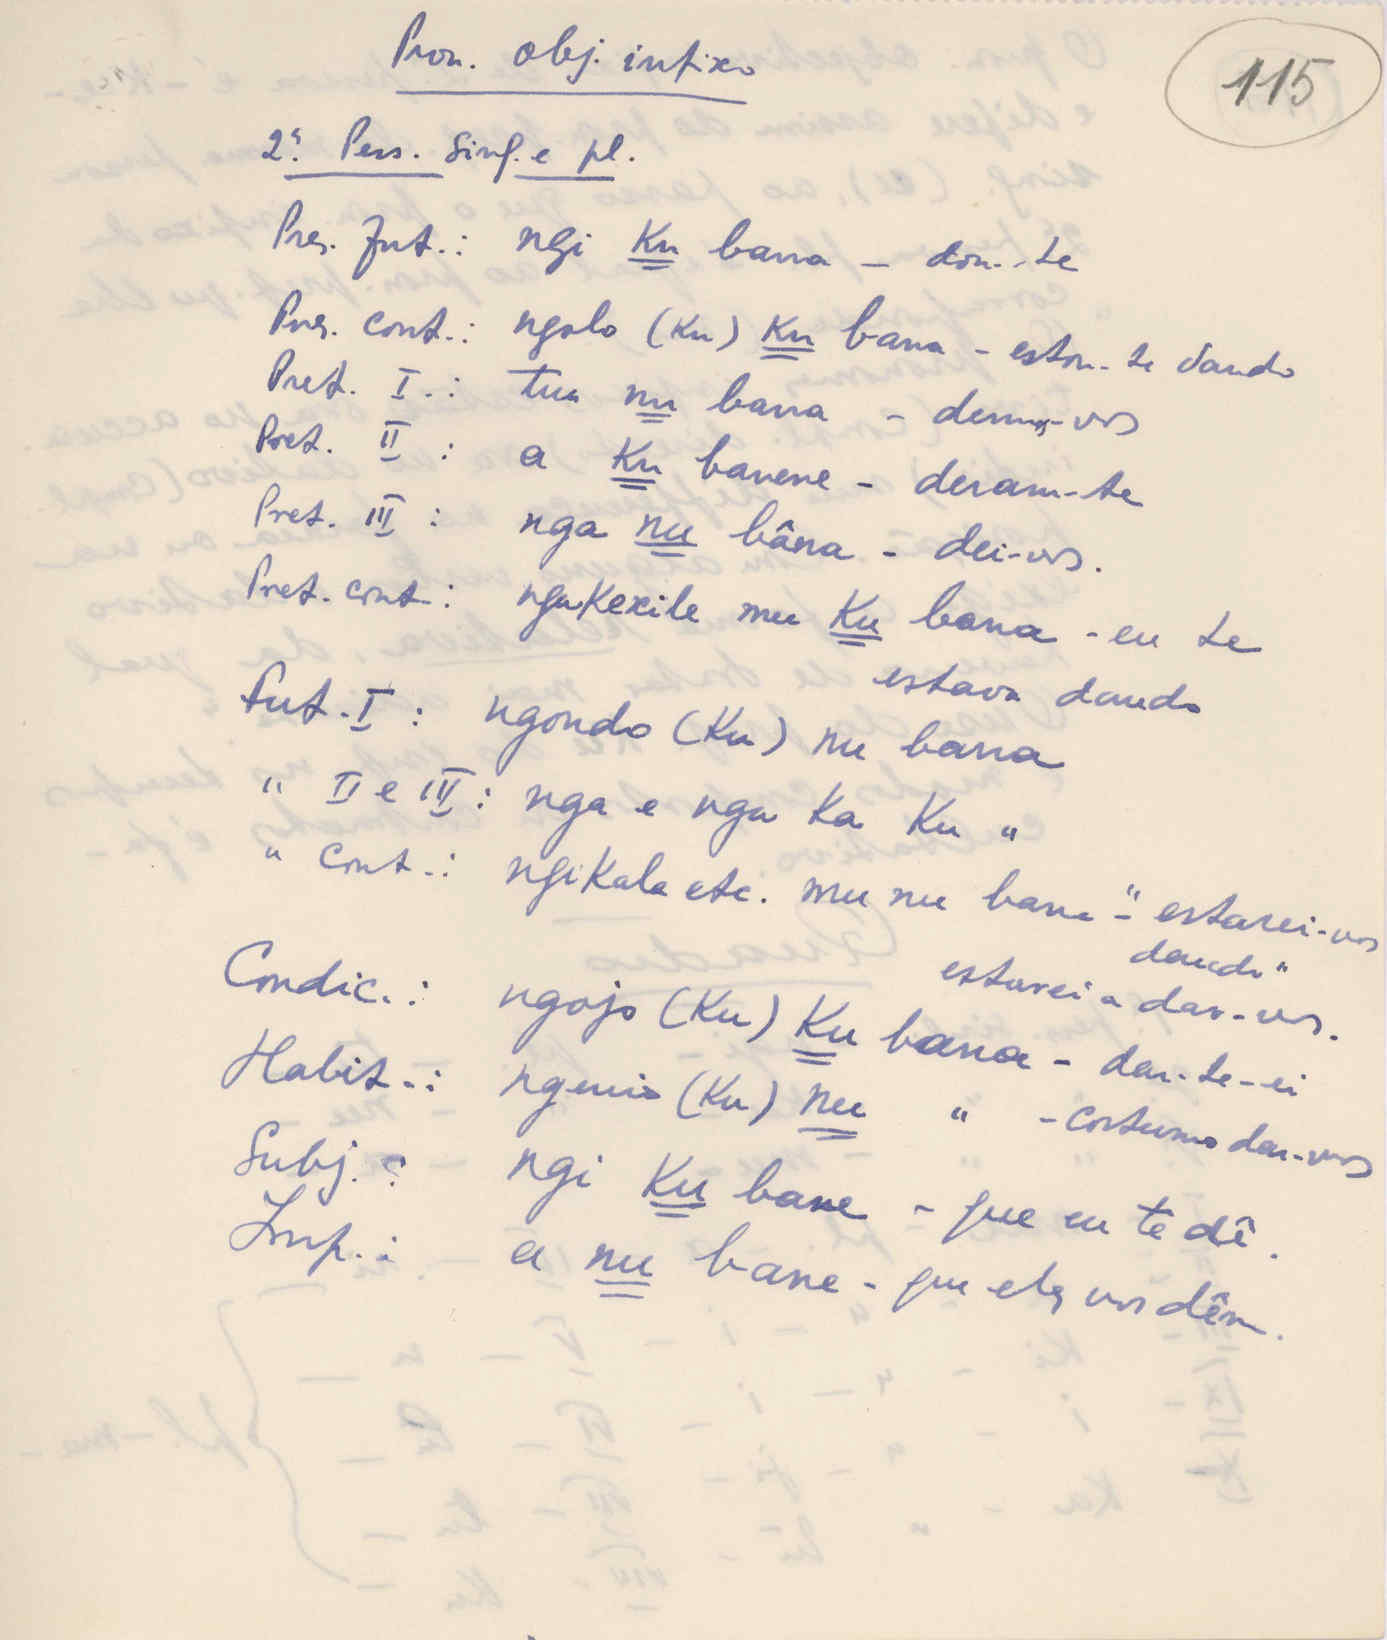 115
Pron. obj. infixo
2ª. Pess. Sing. e pl.
Pres. fut.: ngi Ku bana - dou-te
Pres. cont.: ngolo (Ku) Ku bana - estou-te dando
Pret. I.: tua nu bana - demos-vos
Pret. II: a Ku banene - deram-te
Pret. III: nga nu bâna - dei-vos.
Pret. cont.: ngaKexile mu Ku bana - eu te
estava dando
Fut. I: ngondo (Ku) nu bana
" II e III: nga e nga Ka Ku "
" cont.: ngiKala etc. mu nu bana - "estarei-vos
dando"
estarei a dar-vos.
Condic.: ngojo (Ku) Ku bana - dar-te-ei
Habit.: ngenio (Ku) nu " - costumo dar-vos
Subj.: ngi Ku bane - que eu te dê.
Imp.: a nu bane - que eles vos dêm.